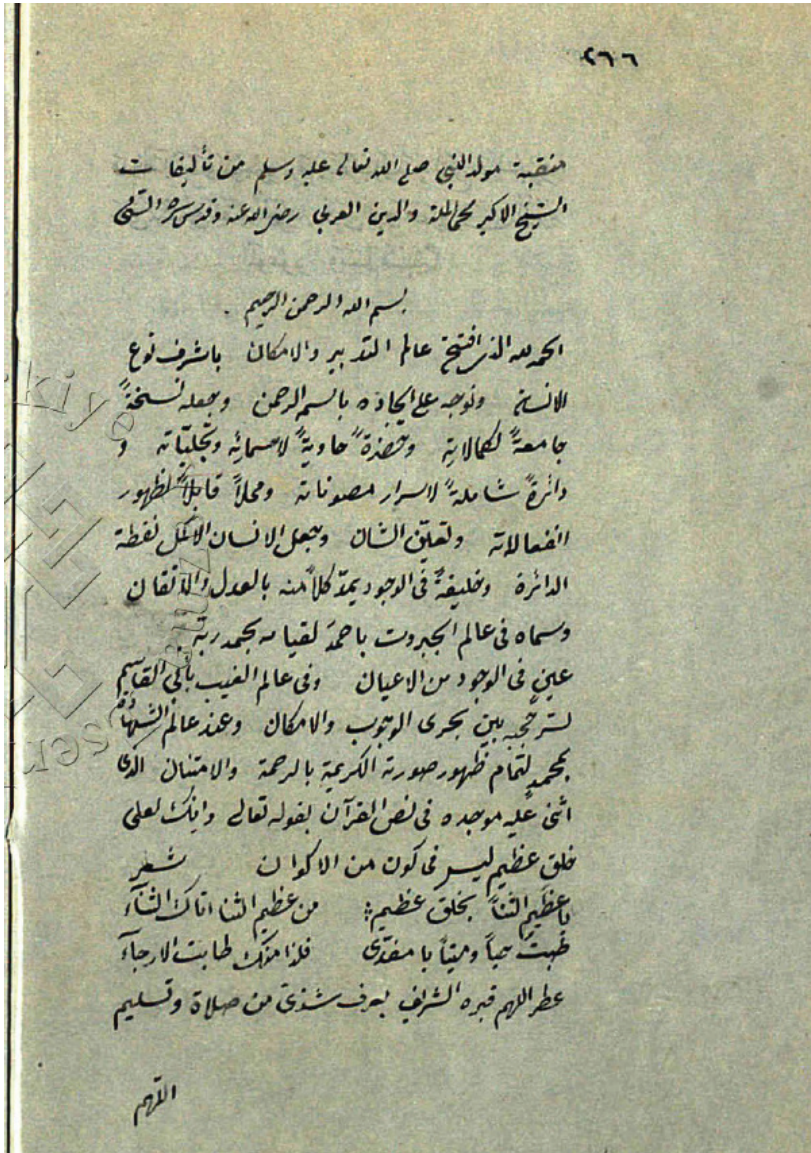 ٢٦٦
منقبة مولد النبي صلى الله تعالى عليه وسلم من تأليفات
الشيخ الاكبر محى الملة والدين العربى رضى الله عنه وقدس سره
بسم الله الرحمن الرحيم
الحمد لله الذى افتتح عالم التدبير والامكان باشرف نوع
الانسان وتوجه على ايجاده باسم الرحمن وجعله نسخةً
جامعةً لكمالاته وحضرةً حاويةً لاسمائه وتجلياته و
دائرةً شاملةً لاسرار مصوناته ومحلاً قابلاً لظهور
انفعالاته وتعلق الشان وجعل الانسان الاكمل نقطة
الدائرة وخليفةً فى الوجود يمدّ كلاً منه بالعدل والاتقان
وسماه فى عالم الجبروت باحمد لقيامه بحمد ربه
عين فى الوجود من الاعيان وفى عالم الغيب بابى القاسم
بين بحرى الوجوب والامكان وعند عالم الشهادة
بمحمد لتمام ظهور صورته الكريمة بالرحمة والامتنان الذى
اثنى عليه موجده فى نص القرآن بقوله تعالى وانك لعلى
خلق عظيم ليس فى كون من الاكوان شعر
يا عظيم الثنا بخلق عظيم من عظيم الثنا اتاك الثنآء
طبت حياً وميتاً يا مفدّى فلذا منك طابت الارجآء
عطر اللهم قبره الشريف بعرف شذى من صلاة وتسليم
اللهم